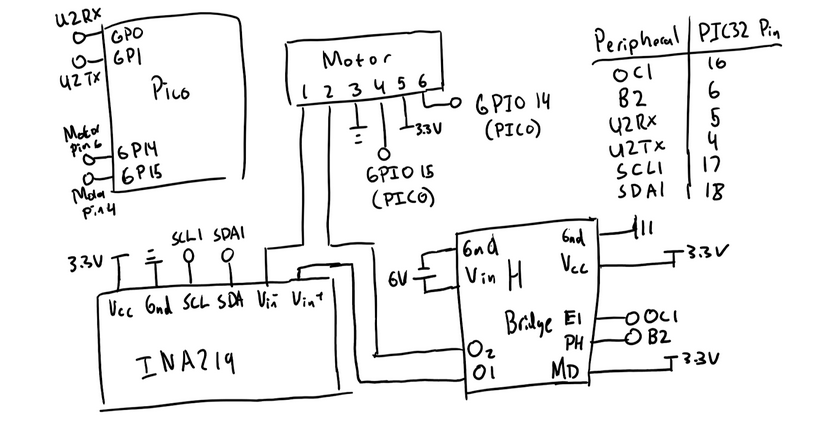 U2RX
GP0
GP1
U2TX
Pico
Motor
pin 6
GP14
GP15
Motor
pin 4
Motor
1 2 3 4 5 6
GPIO 14
(PICO)
3.3V
GPIO 15
(PICO)
Peripheral PIC32 Pin
OC1 16
B2 6
U2RX 5
U2TX 4
SCL1 17
SDA1 18
3.3V SCL1 SDA1
Vcc Gnd SCL SDA Vin- Vin+
INA219
6V
Gnd
Vin
H
Bridge
O2
O1
Gnd
Vcc 3.3V
E1 OC1
PH B2
MD 3.3V